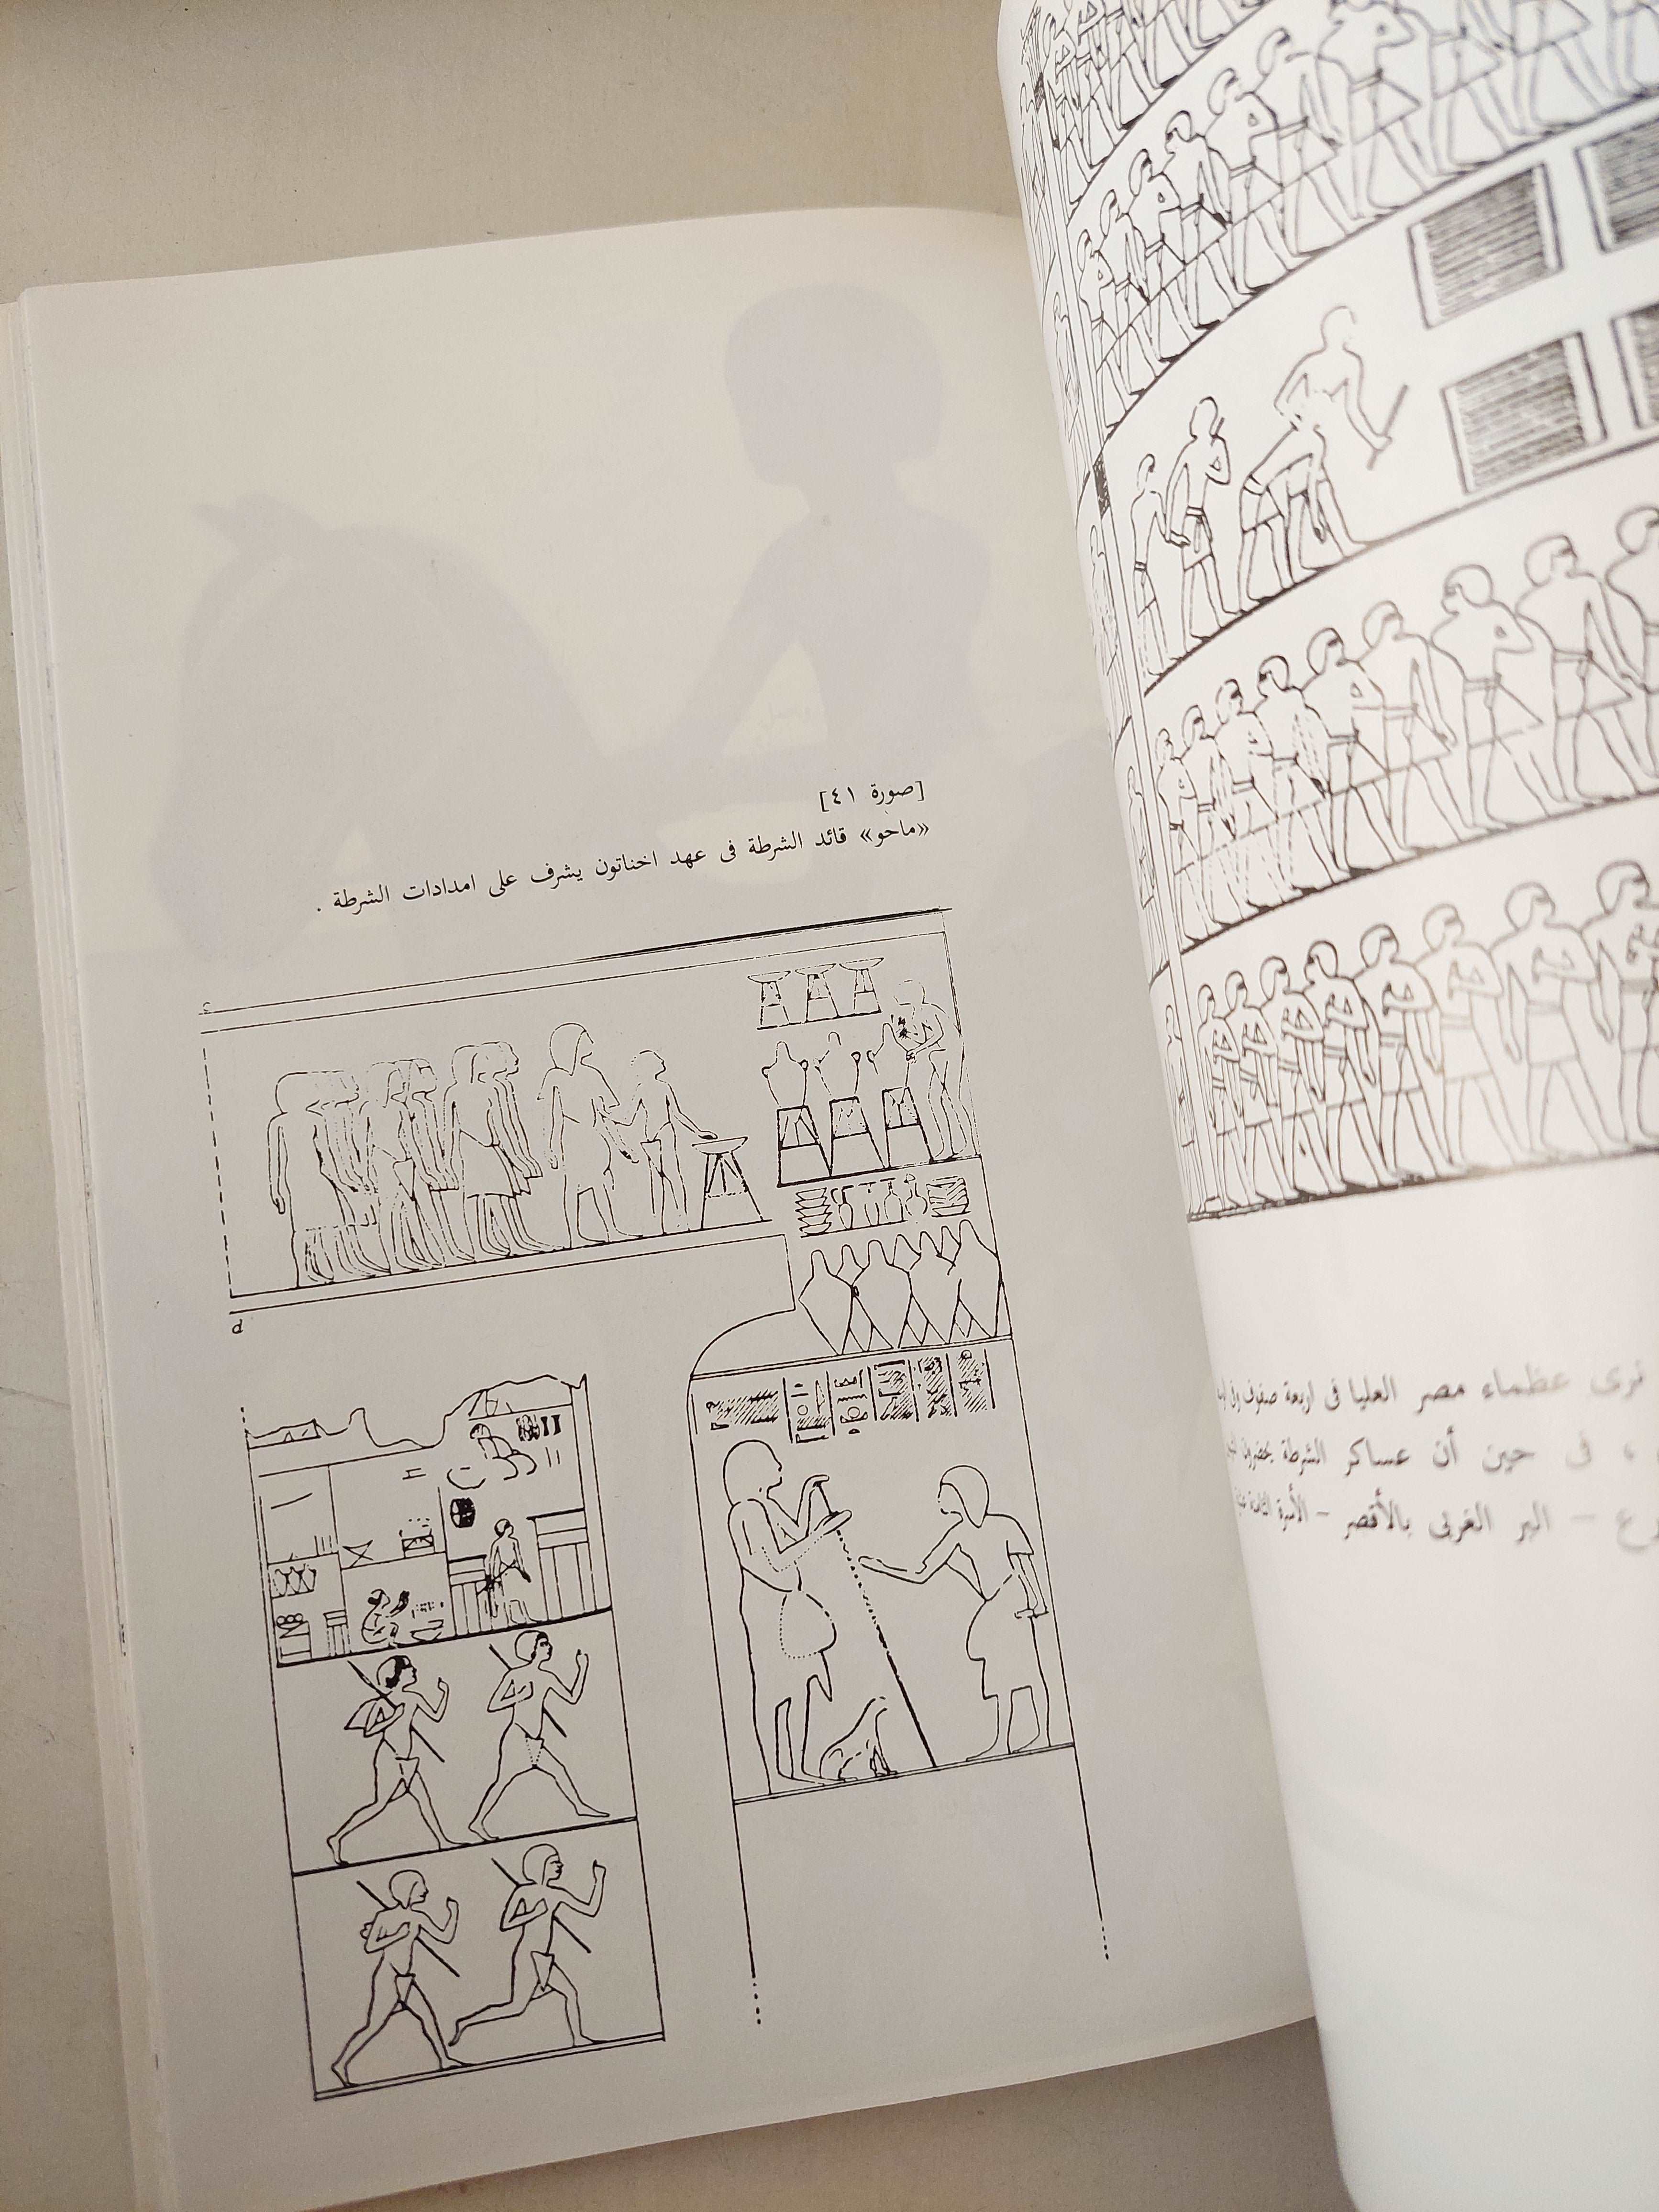 [صورة ٤١]
«ماحو» قائد الشرطة فى عهد اخناتون يشرف على امدادات الشرطة .
c
d
نرى عظماء مصر العليا فى اربعة صفوف
، فى حين أن عساكر الشرطة يحضرون
– البر الغربى بالأقصر – الأسرة